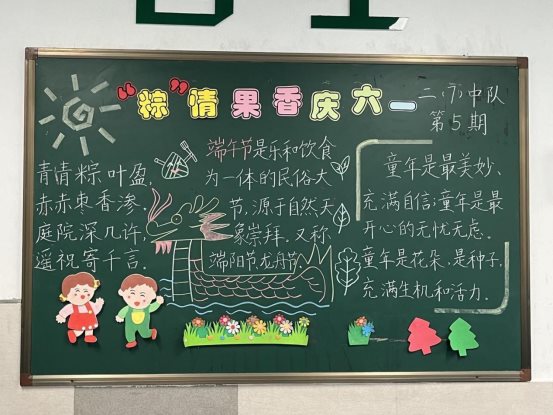 “粽”情果香庆六一
二(7)中队
第5期
青青粽叶盈,
赤赤枣香渗,
庭院深几许,
遥祝寄千言.
端午节是乐和饮食
为一体的民俗大
节,源于自然天
象崇拜.又称
端阳节龙舟节
童年是最美妙、
充满自信;童年是最
开心的无忧无虑.
童年是花朵,是种子,
充满生机和活力.